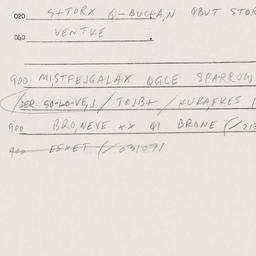 020 S+TORX Q-BUCHAN QBUT STOR
060 VENTKE
900 MISTFEJGALAX QGLE SPARROW
(/DER SO-LO-VEJ / TOJB+ / KUKAFKES
900 BRO,NEVE xx QI BRONE (/213
900 ESKET (/031091